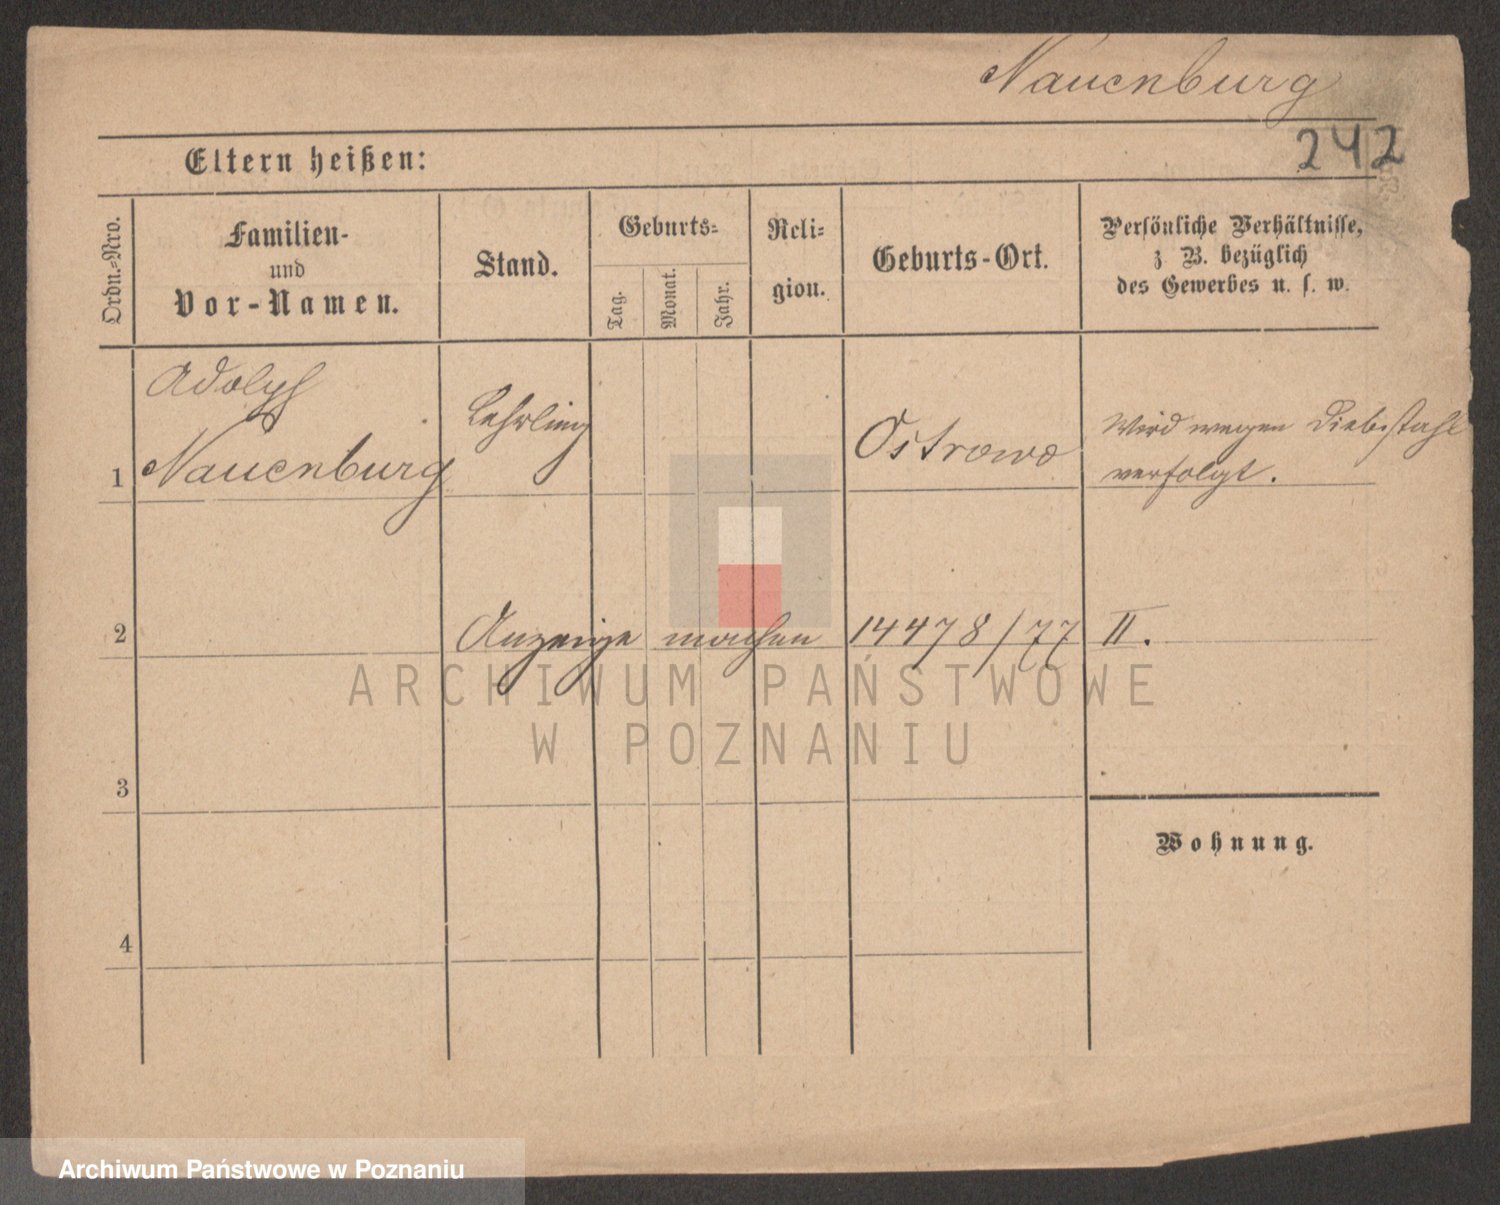 Nauenburg
242
Eltern heißen:
Ordn.-Nro.
Familien-
und
Vor-Namen.
Stand.
Geburts-
Tag.
Monat.
Jahr.
Reli-
gion.
Geburts-Ort.
Persönliche Verhältnisse,
z B. bezüglich
des Gewerbes u. s. w.
Adolph
Nauenburg
Lehrling
Ostrowo
Wird wegen Diebstahl
verfolgt.
1
2
Anzeige machen 14478/77 II.
ARCHIWUM PAŃSTWOWE
W POZNANIU
3
Wohnung.
4
Archiwum Państwowe w Poznaniu